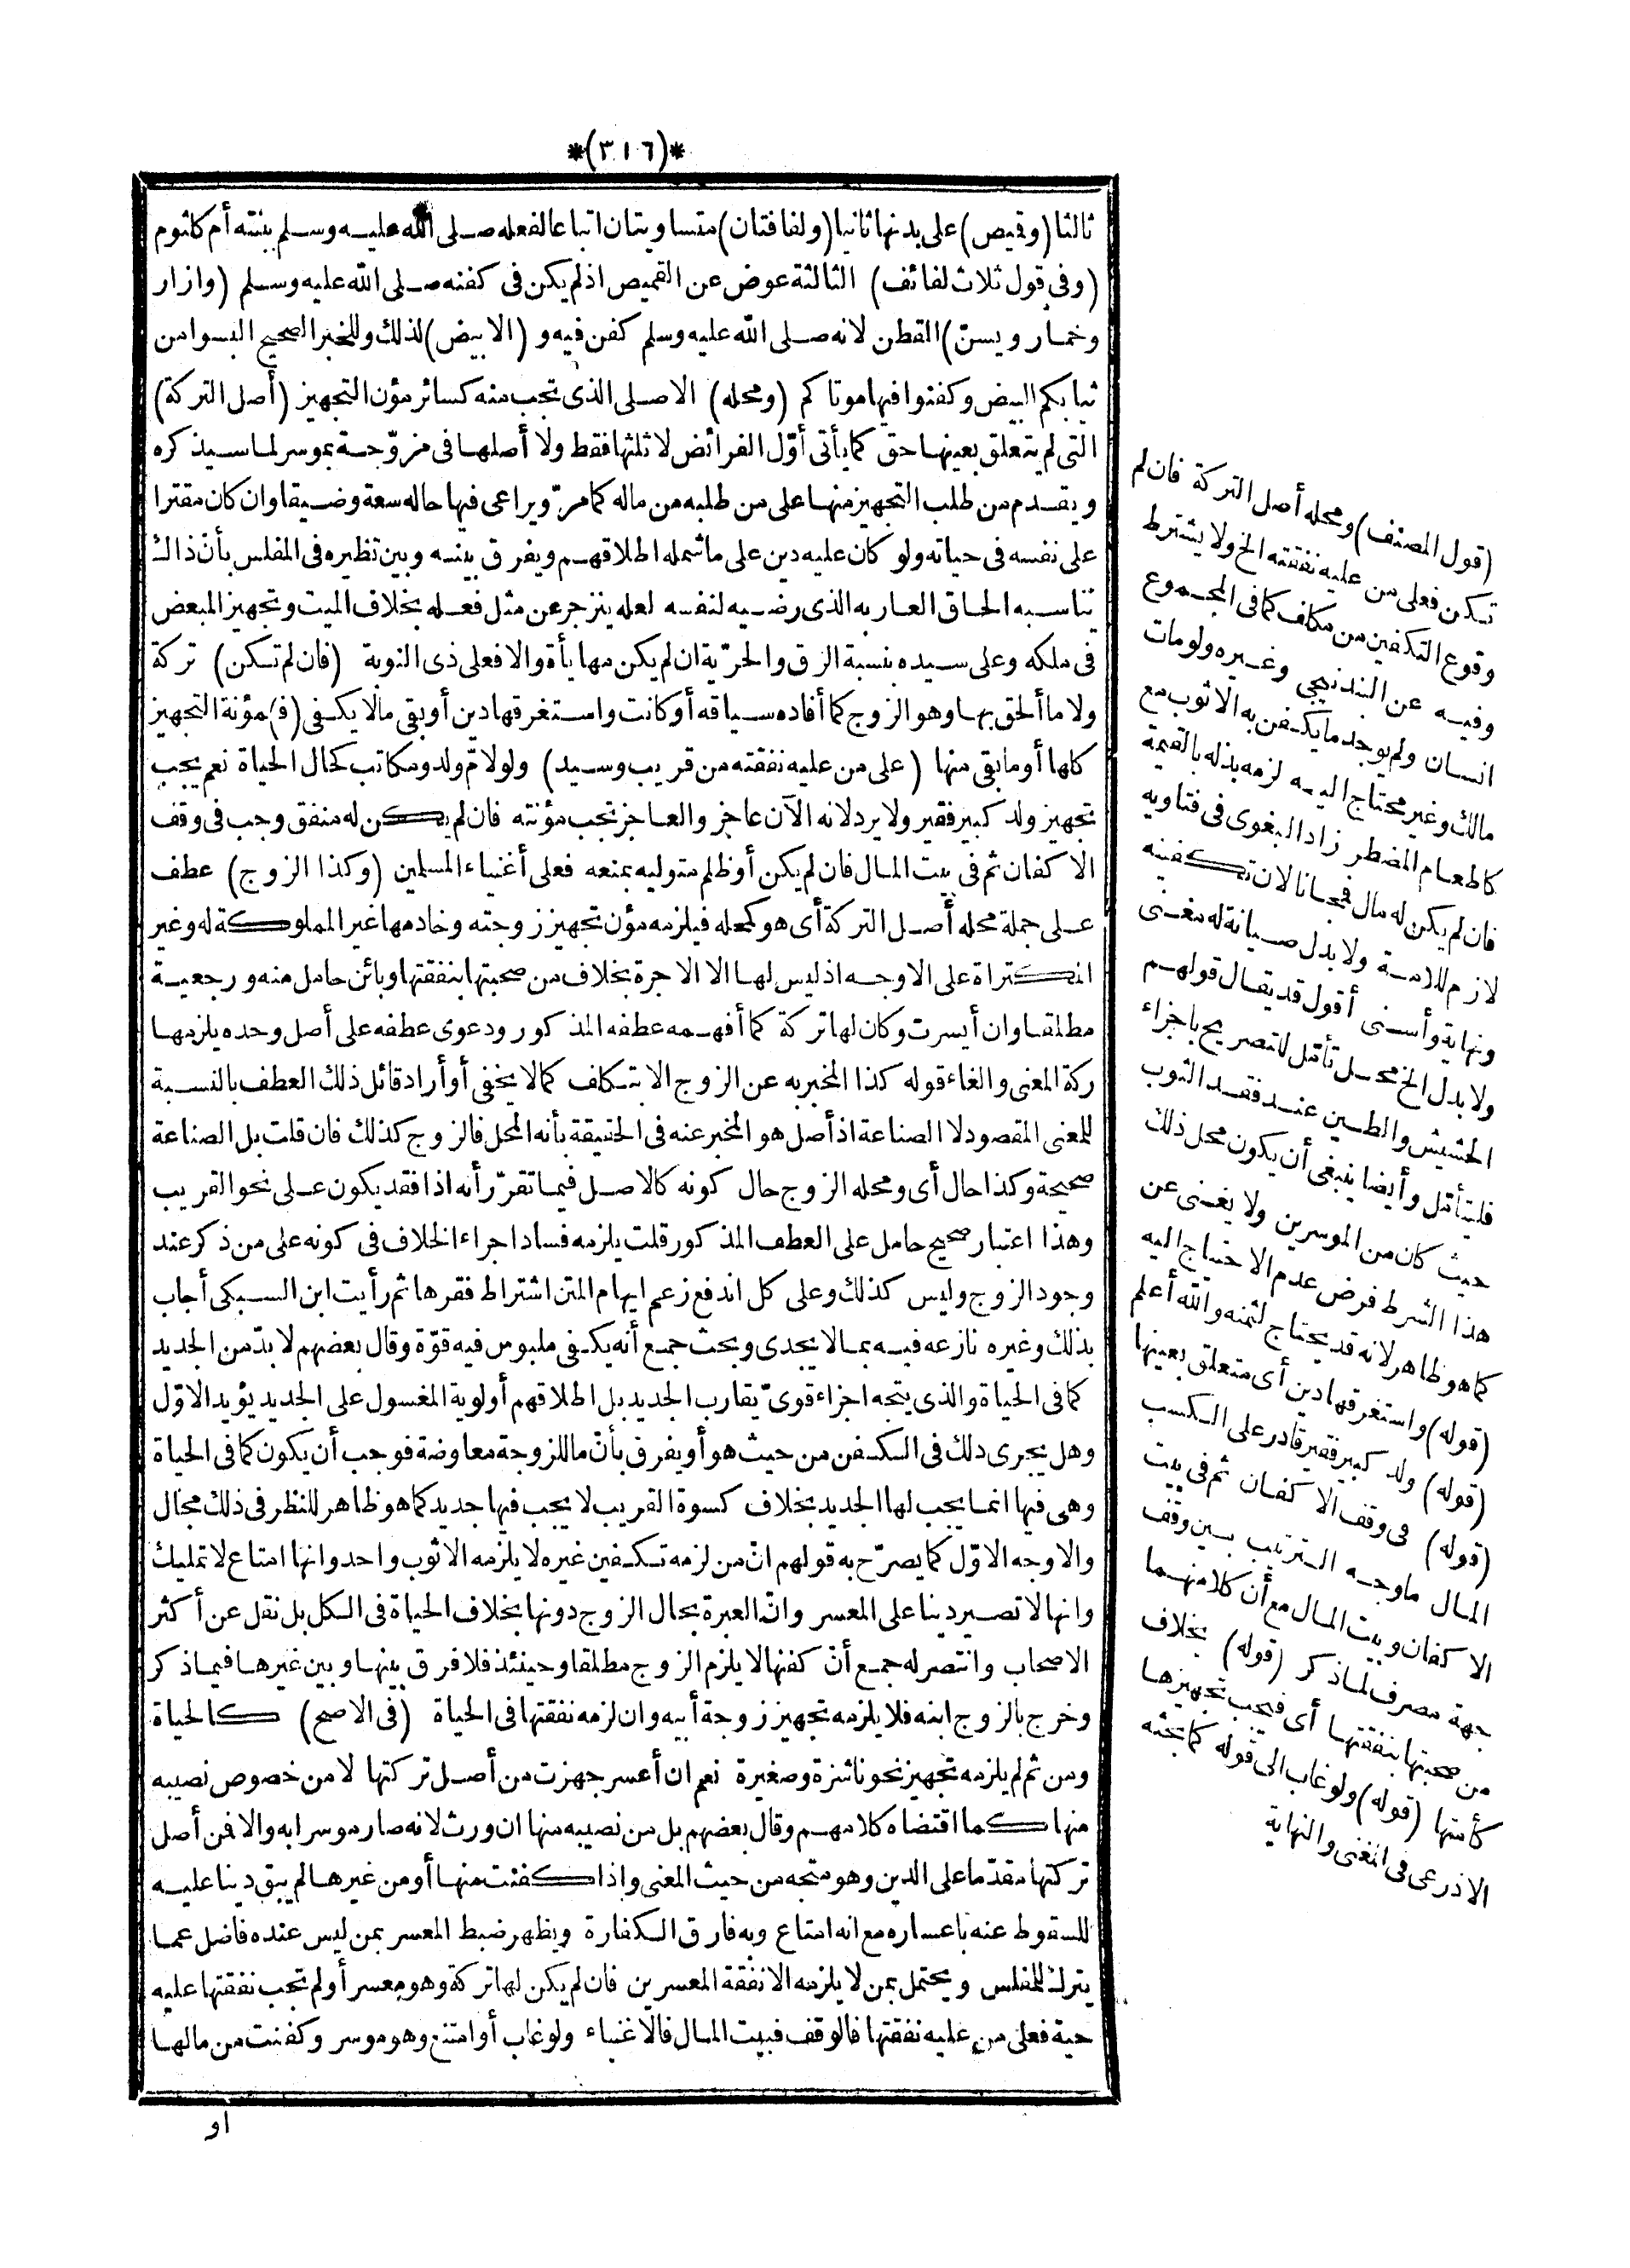 *(٣١٦)*
ثالثا (وقميص) على بدنها ثانيا (ولفافتان) متساويتان اتباعا لفعله صلى الله عليه وسلم ببنته أم كلثوم
(وفى قول ثلاث لفائف) الثالثة عوض عن القميص اذ لم يكن فى كفنه صلى الله عليه وسلم (وازار
وخمار ويسنّ) القطن لانه صلى الله عليه وسلم كفن فيه و (الابيض) لذلك وللخبر الصحيح البسوا من
ثيابكم البيض وكفنوا فيها موتاكم (ومحله) الاصلى الذى تجب منه كسائر مؤن التجهيز (أصل التركة)
التى لم يتعلق بعينها حق كما يأتى أوّل الفرائض لا ثلثها فقط ولا أصلها فى مزوّجة بموسر لما سيذكره
ويقدم من طلب التجهيز منها على من طلبه من ماله كما مرّ ويراعى فيها حاله سعة وضيقا وان كان مقترا
على نفسه فى حياته ولو كان عليه دين على ما شمله اطلاقهم ويفرق بينه وبين نظيره فى المفلس بأنّ ذاك
يناسبه الحاق العار به الذى رضيه لنفسه لعله ينزجر عن مثل فعله بخلاف الميت وتجهيز المبعض
فى ملكه وعلى سيده بنسبة الرق والحرّية ان لم يكن مهايأة والا فعلى ذى النوبة (فان لم تكن) تركة
ولا ما ألحق بها وهو الزوج كما أفاده سياقه أو كانت واستغرقها دين أو بقى مالا يكفى (ف) مؤنة التجهيز
كلها أو ما بقى منها (على من عليه نفقته من قريب وسيد) ولو لامّ ولد ومكاتب كحال الحياة نعم يجب
تجهيز ولد كبير فقير ولا يرد لانه الآن عاجز والعاجز تجب مؤنته فان لم يكن له منفق وجب فى وقف
الاكفان ثم فى بيت المال فان لم يكن أو ظلم متوليه بمنعه فعلى أغنياء المسلمين (وكذا الزوج) عطف
على جملة محله أصل التركة أى هو كمحله فيلزمه مؤن تجهيز زوجته وخادمها غير المملوكة له وغير
المكتراة على الاوجه اذ ليس لها الا الاجرة بخلاف من صحبتها بنفقتها وبائن حامل منه ورجعية
مطلقا وان أيسرت وكان لها تركة كما أفهمه عطفه المذكور ودعوى عطفه على أصل وحده يلزمها
ركة المعنى والغاء قوله كذا المخبر به عن الزوج الا بتكلف كما لا يخفى أو أراد قائل ذلك العطف بالنسبة
للمعنى المقصود لا الصناعة اذ أصل هو المخبر عنه فى الحقيقة بأنه المحل فالزوج كذلك فان قلت بل الصناعة
صحيحة وكذا حال أى ومحله الزوج حال كونه كالاصل فيما تقرّر أنه اذا فقد يكون على نحو القريب
وهذا اعتبار صحيح حامل على العطف المذكور قلت يلزمه فساد اجراء الخلاف فى كونه على من ذكر عند
وجود الزوج وليس كذلك وعلى كل اندفع زعم ايهام المتن اشتراط فقرها ثم رأيت ابن السبكى أجاب
بذلك وغيره نازعه فيه بما لا يجدى وبحث جمع أنه يكفى ملبوس فيه قوّة وقال بعضهم لا بدّ من الجديد
كما فى الحياة والذى يتجه اجزاء قوىّ يقارب الجديد بل اطلاقهم أولوية المغسول على الجديد يؤيد الاوّل
وهل يجرى ذلك فى الكفن من حيث هو أو يفرق بأنّ ما للزوجة معاوضة فوجب أن يكون كما فى الحياة
وهى فيها انما يجب لها الجديد بخلاف كسوة القريب لا يجب فيها جديد كما هو ظاهر للنظر فى ذلك مجال
والاوجه الاوّل كما يصرّح به قولهم انّ من لزمه تكفين غيره لا يلزمه الا ثوب واحد وانها امتاع لا تمليك
وانها لا تصير دينا على المعسر وانّ العبرة بحال الزوج دونها بخلاف الحياة فى الكل بل نقل عن أكثر
الاصحاب وانتصر له جمع أنّ كفنها لا يلزم الزوج مطلقا وحينئذ فلا فرق بينها وبين غيرها فيما ذكر
وخرج بالزوج ابنه فلا يلزمه تجهيز زوجة أبيه وان لزمه نفقتها فى الحياة (فى الاصح) كالحياة
ومن ثم لم يلزمه تجهيز نحو ناشزة وصغيرة نعم ان أعسر جهزت من أصل تركتها لا من خصوص نصيبه
منها كما اقتضاه كلامهم وقال بعضهم بل من نصيبه منها ان ورث لانه صار موسرا به والا فمن أصل
تركتها مقدّما على الدين وهو متجه من حيث المعنى واذا كفنت منها أو من غيرها لم يبق دينا عليه
للسقوط عنه باعساره مع انه امتاع وبه فارق الكفارة ويظهر ضبط المعسر بمن ليس عنده فاضل عما
يترك للمفلس ويحتمل بمن لا يلزمه الا نفقة المعسرين فان لم يكن لها تركة وهو معسر أو لم تجب نفقتها عليه
حية فعلى من عليه نفقتها فالوقف فبيت المال فالاغنياء ولو غاب أو امتنع وهو موسر وكفنت من مالها
او
(قول المصنف) ومحله أصل التركة فان لم
تكن فعلى من عليه نفقته الخ ولا يشترط
وقوع التكفين من مكلف كما فى المجموع
وفيه عن البندنيجى وغيره ولو مات
انسان ولم يوجد ما يكفن به الا ثوب مع
مالك وغير محتاج اليه لزمه بذله بالقيمة
كالطعام المضطر زاد البغوى فى فتاويه
فان لم يكن له مال فمجانا لان تكفينه
لازم للامة ولا بدل صيانة له مغنى
ونهاية وأسنى أقول قد يقال قولهم
ولا بدل الخ محل تأمّل لتصريح باجزاء
الحشيش والطين عند فقد الثوب
فليتأمّل وأيضا ينبغى أن يكون محل ذلك
حيث كان من الموسرين ولا يغنى عن
هذا الشرط فرض عدم الاحتياج اليه
كما هو ظاهر لانه قد يحتاج لثمنه والله أعلم
(قوله) واستغرقها دين أى متعلق بعينها
(قوله) ولد كبير فقير قادر على الكسب
(قوله) فى وقف الاكفان ثم فى بيت
المال ما وجه الترتيب بين وقف
الاكفان وبيت المال مع أن كلا منهما
جهة مصرف لما ذكر (قوله) بخلاف
من صحبتها بنفقتها أى فيجب تجهيزها
كأمتها (قوله) ولو غاب الى قوله كما بحثه
الاذرعى فى المغنى والنهاية